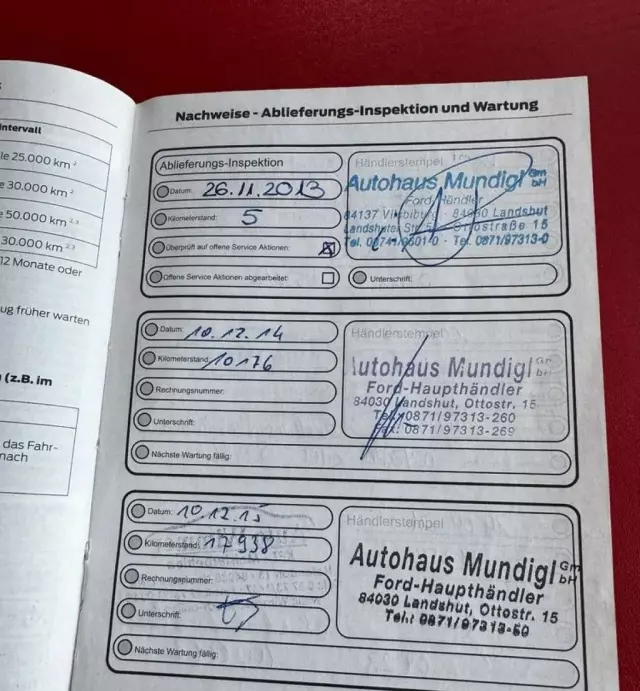 intervall
le 25.000 km ²
e 30.000 km ²
e 50.000 km ²·³
30.000 km ²·³
12 Monate oder
ug früher warten
(z.B. im
das Fahr-
nach
Nachweise - Ablieferungs-Inspektion und Wartung
Ablieferungs-Inspektion
Datum: 26.11.2013
Kilometerstand: 5
Überprüft auf offene Service Aktionen:
Offene Service Aktionen abgearbeitet:
Händlerstempel
Autohaus Mundigl GmbH
Ford-Händler
84137 Vilsbiburg · 84030 Landshut
Landshuter Str. Ottostraße 15
Tel. 08741/9601-0 · Tel. 0871/97313-0
Unterschrift:
Datum: 10.12.14
Kilometerstand: 10176
Rechnungsnummer:
Unterschrift:
Nächste Wartung fällig:
Händlerstempel
Autohaus Mundigl GmbH
Ford-Haupthändler
84030 Landshut, Ottostr. 15
Tel.: 0871/97313-260
Fax: 0871/97313-269
Datum: 10.12.15
Kilometerstand: 17938
Rechnungsnummer:
Unterschrift:
Nächste Wartung fällig:
Händlerstempel
Autohaus Mundigl GmbH
Ford-Haupthändler
84030 Landshut, Ottostr. 15
Tel.: 0871/97313-60